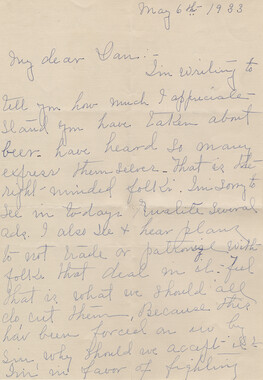 May 6th 1933
My dear Dan:-
I'm writing to
tell you how much I appreciate
stand you have taken about
beer. have heard so many
express themselves. That is the
right-minded folks. I'm sorry to
see in todays several
ads. I also see & hear plans
to not trade or patronize with
folks that deal in it. feel
that is what we should all
do cut them, Because this
has been forced on us by
why should we accept it
I'm in favor of fighting